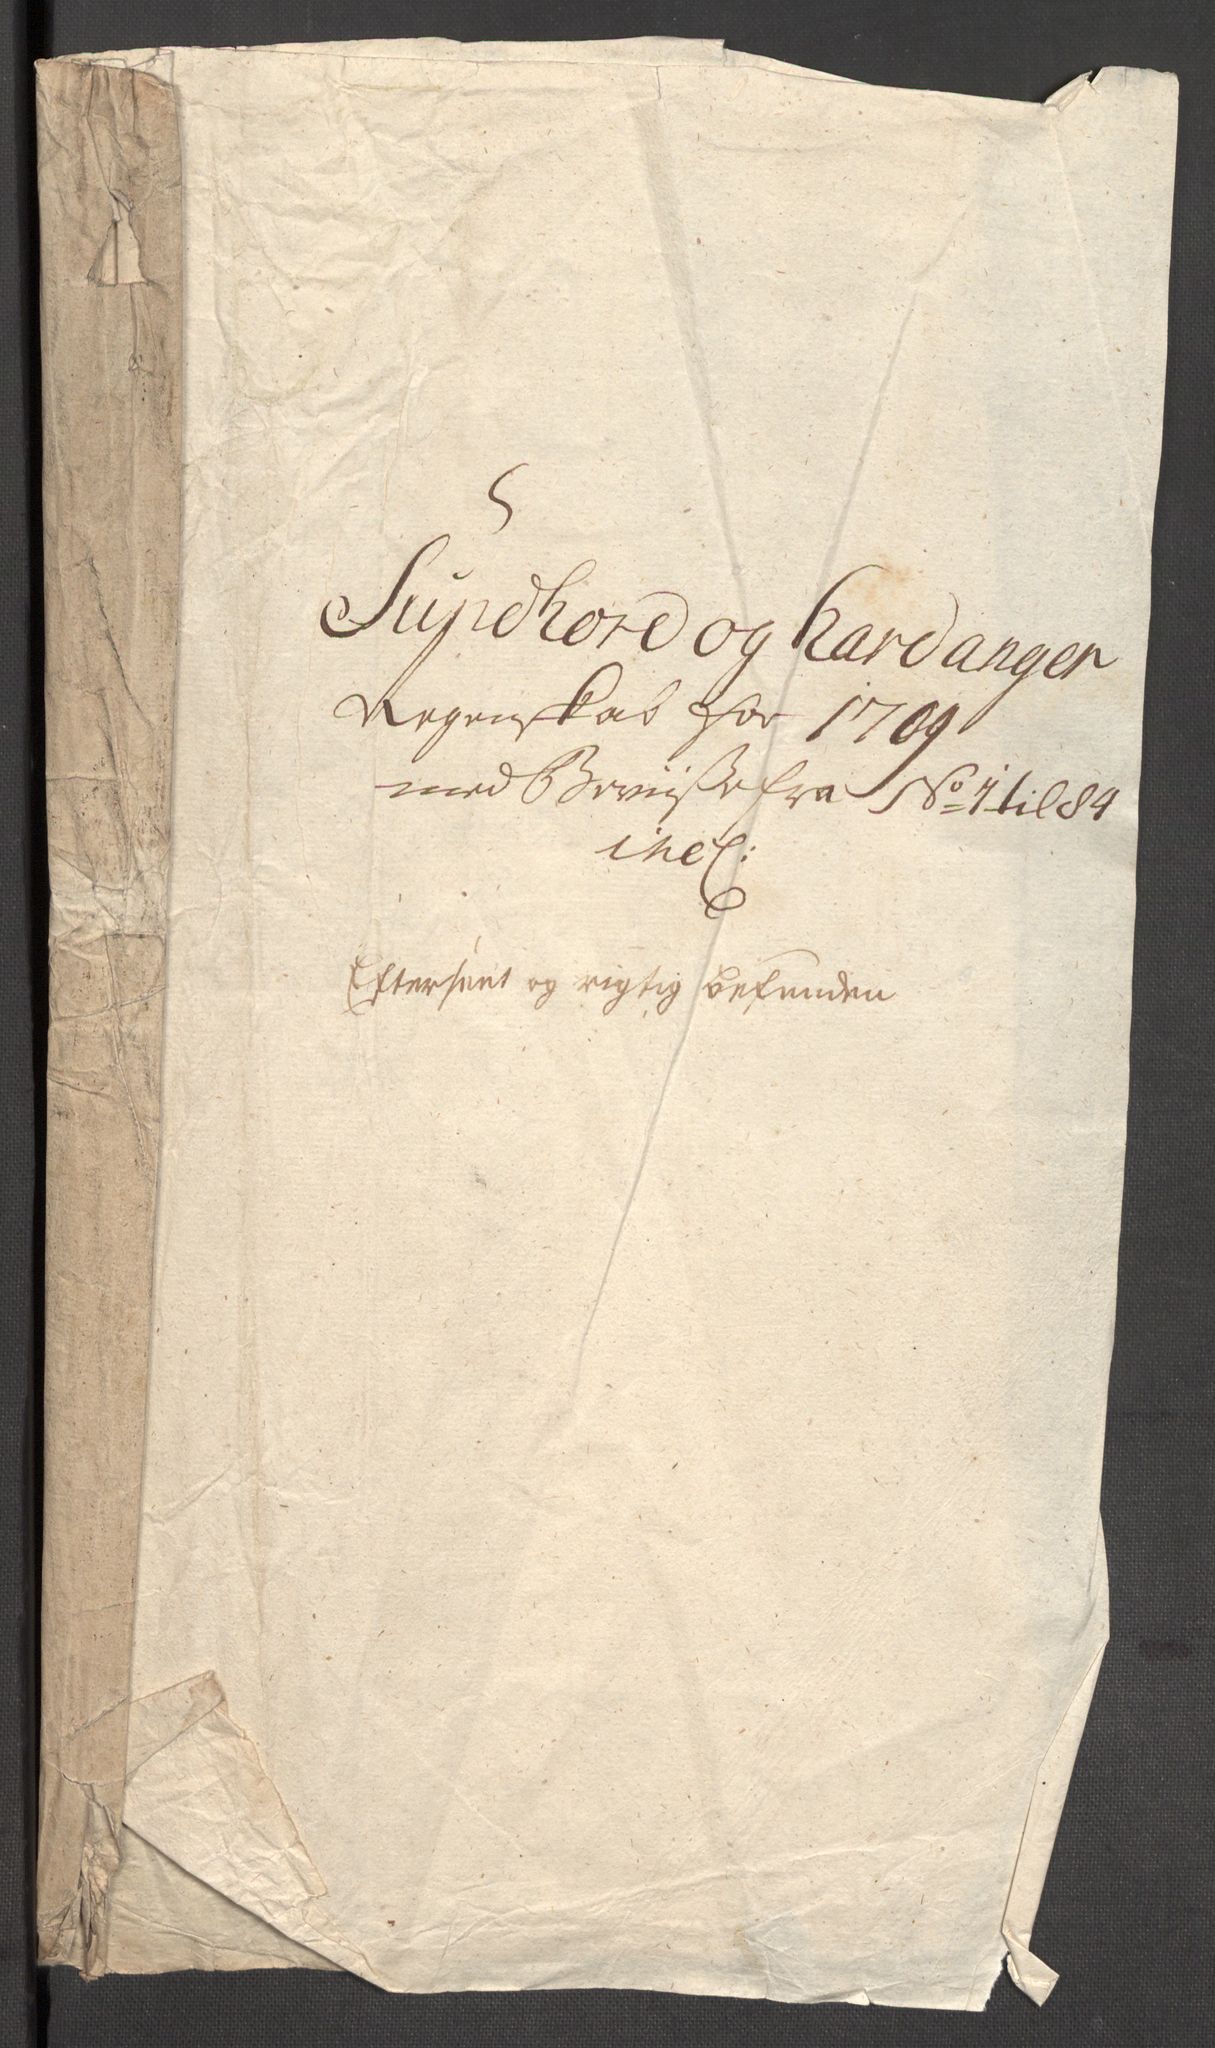 Sundhord og hardanger
Regenskab for 1709
med Beviisse fra No 1 til 84
incl:
Efterseet og rigtig befunden